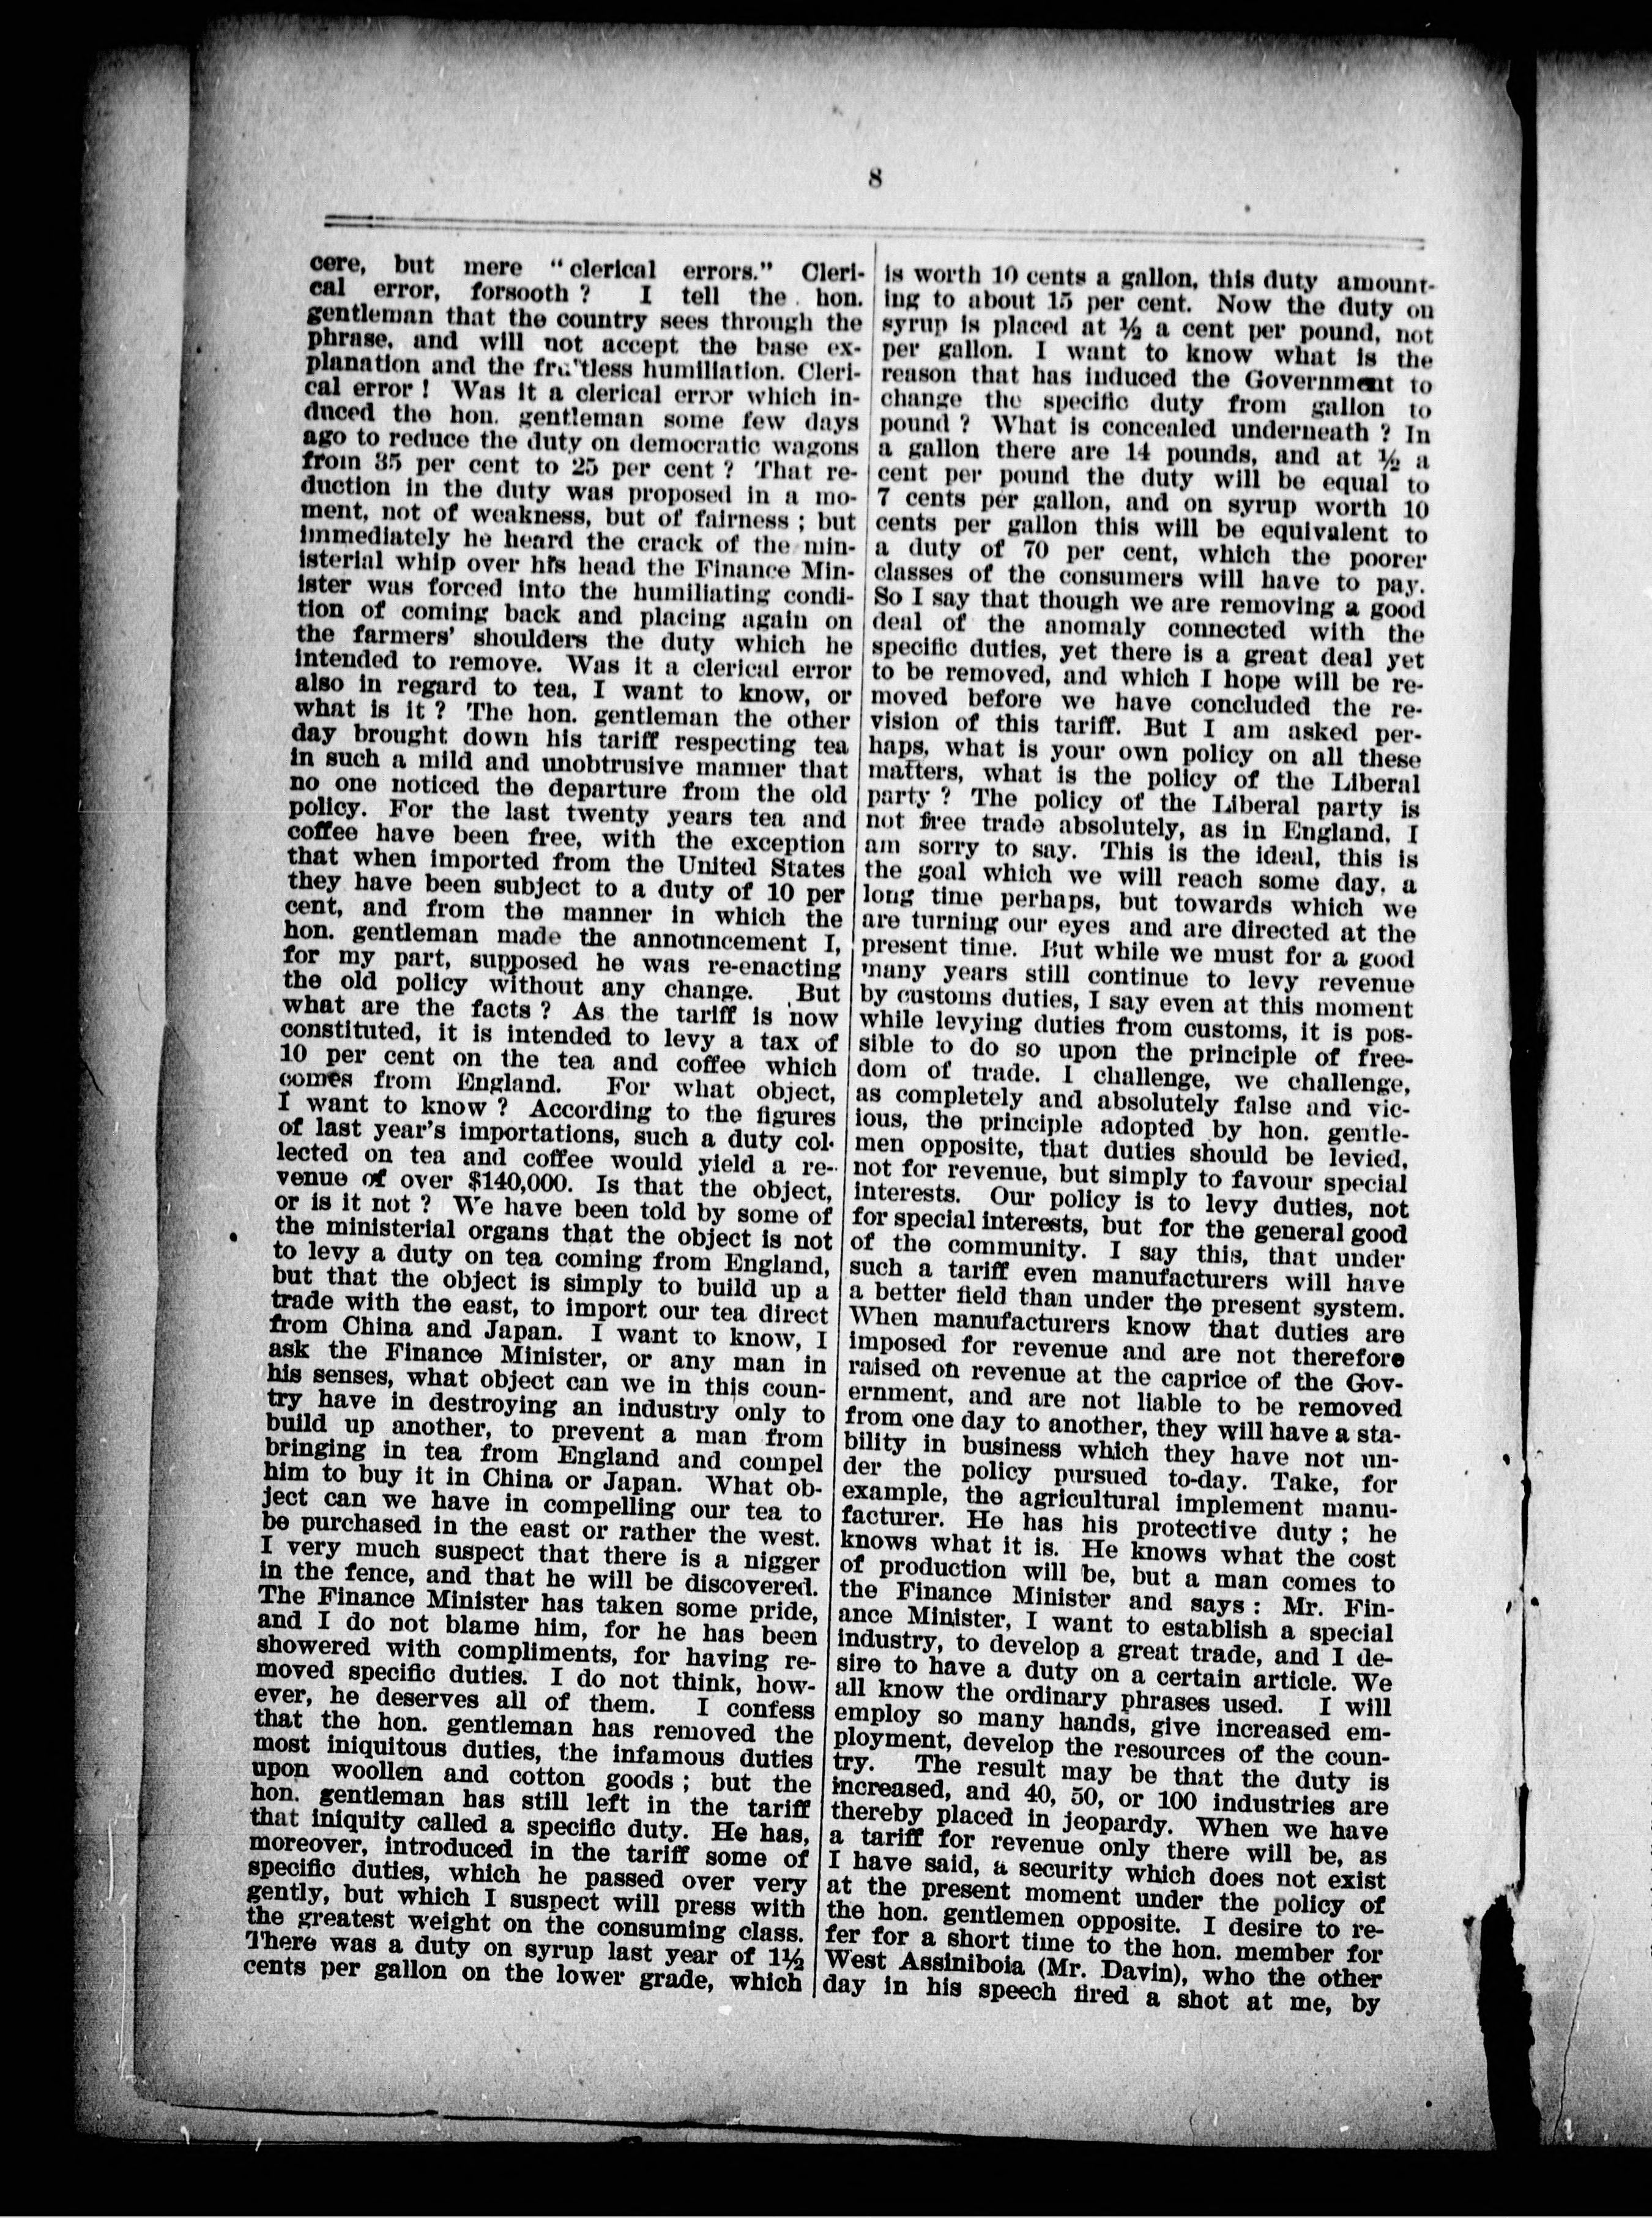 8
cere, but mere "clerical errors." Cleri-
cal error, forsooth? I tell the hon.
gentleman that the country sees through the
phrase, and will not accept the base ex-
planation and the humiliation. Cleri-
cal error! Was it a clerical error which in-
duced the hon. gentleman some few days
ago to reduce the duty on democratic wagons
from 35 per cent to 25 per cent? That re-
duction in the duty was proposed in a mo-
ment, not of weakness, but of fairness; but
immediately he heard the crack of the min-
isterial whip over his head the Finance Min-
ister was forced into the humiliating condi-
tion of coming back and placing again on
the farmers' shoulders the duty which he
intended to remove. Was it a clerical error
also in regard to tea, I want to know, or
what is it? The hon. gentleman the other
day brought down his tariff respecting tea
in such a mild and unobtrusive manner that
no one noticed the departure from the old
policy. For the last twenty years tea and
coffee have been free, with the exception
that when imported from the United States
they have been subject to a duty of 10 per
cent, and from the manner in which the
hon. gentleman made the announcement I,
for my part, supposed he was re-enacting
the old policy without any change. But
what are the facts? As the tariff is now
constituted, it is intended to levy a tax of
10 per cent on the tea and coffee which
comes from England. For what object,
I want to know? According to the figures
of last year's importations, such a duty col-
lected on tea and coffee would yield a re-
venue of over $140,000. Is that the object,
or is it not? We have been told by some of
the ministerial organs that the object is not
to levy a duty on tea coming from England,
but that the object is simply to build up a
trade with the east, to import our tea direct
from China and Japan. I want to know, I
ask the Finance Minister, or any man in
his senses, what object can we in this coun-
try have in destroying an industry only to
build up another, to prevent a man from
bringing in tea from England and compel
him to buy it in China or Japan. What ob-
ject can we have in compelling our tea to
be purchased in the east or rather the west.
I very much suspect that there is a nigger
in the fence, and that he will be discovered.
The Finance Minister has taken some pride,
and I do not blame him, for he has been
showered with compliments, for having re-
moved specific duties. I do not think, how-
ever, he deserves all of them. I confess
that the hon. gentleman has removed the
most iniquitous duties, the infamous duties
upon woollen and cotton goods; but the
hon. gentleman has still left in the tariff
that iniquity called a specific duty. He has,
moreover, introduced in the tariff some of
specific duties, which he passed over very
gently, but which I suspect will press with
the greatest weight on the consuming class.
There was a duty on syrup last year of 1½
cents per gallon on the lower grade, which
is worth 10 cents a gallon, this duty amount-
ing to about 15 per cent. Now the duty on
syrup is placed at ½ a cent per pound, not
per gallon. I want to know what is the
reason that has induced the Government to
change the specific duty from gallon to
pound? What is concealed underneath? In
a gallon there are 14 pounds, and at ½ a
cent per pound the duty will be equal to
7 cents per gallon, and on syrup worth 10
cents per gallon this will be equivalent to
a duty of 70 per cent, which the poorer
classes of the consumers will have to pay.
So I say that though we are removing a good
deal of the anomaly connected with the
specific duties, yet there is a great deal yet
to be removed, and which I hope will be re-
moved before we have concluded the re-
vision of this tariff. But I am asked per-
haps, what is your own policy on all these
matters, what is the policy of the Liberal
party? The policy of the Liberal party is
not free trade absolutely, as in England, I
am sorry to say. This is the ideal, this is
the goal which we will reach some day, a
long time perhaps, but towards which we
are turning our eyes and are directed at the
present time. But while we must for a good
many years still continue to levy revenue
by customs duties, I say even at this moment
while levying duties from customs, it is pos-
sible to do so upon the principle of free-
dom of trade. I challenge, we challenge,
as completely and absolutely false and vic-
ious, the principle adopted by hon. gentle-
men opposite, that duties should be levied,
not for revenue, but simply to favour special
interests. Our policy is to levy duties, not
for special interests, but for the general good
of the community. I say this, that under
such a tariff even manufacturers will have
a better field than under the present system.
When manufacturers know that duties are
imposed for revenue and are not therefore
raised on revenue at the caprice of the Gov-
ernment, and are not liable to be removed
from one day to another, they will have a sta-
bility in business which they have not un-
der the policy pursued to-day. Take, for
example, the agricultural implement manu-
facturer. He has his protective duty; he
knows what it is. He knows what the cost
of production will be, but a man comes to
the Finance Minister and says: Mr. Fin-
ance Minister, I want to establish a special
industry, to develop a great trade, and I de-
sire to have a duty on a certain article. We
all know the ordinary phrases used. I will
employ so many hands, give increased em-
ployment, develop the resources of the coun-
try. The result may be that the duty is
increased, and 40, 50, or 100 industries are
thereby placed in jeopardy. When we have
a tariff for revenue only there will be, as
I have said, a security which does not exist
at the present moment under the policy of
the hon. gentlemen opposite. I desire to re-
fer for a short time to the hon. member for
West Assiniboia (Mr. Davin), who the other
day in his speech fired a shot at me, by